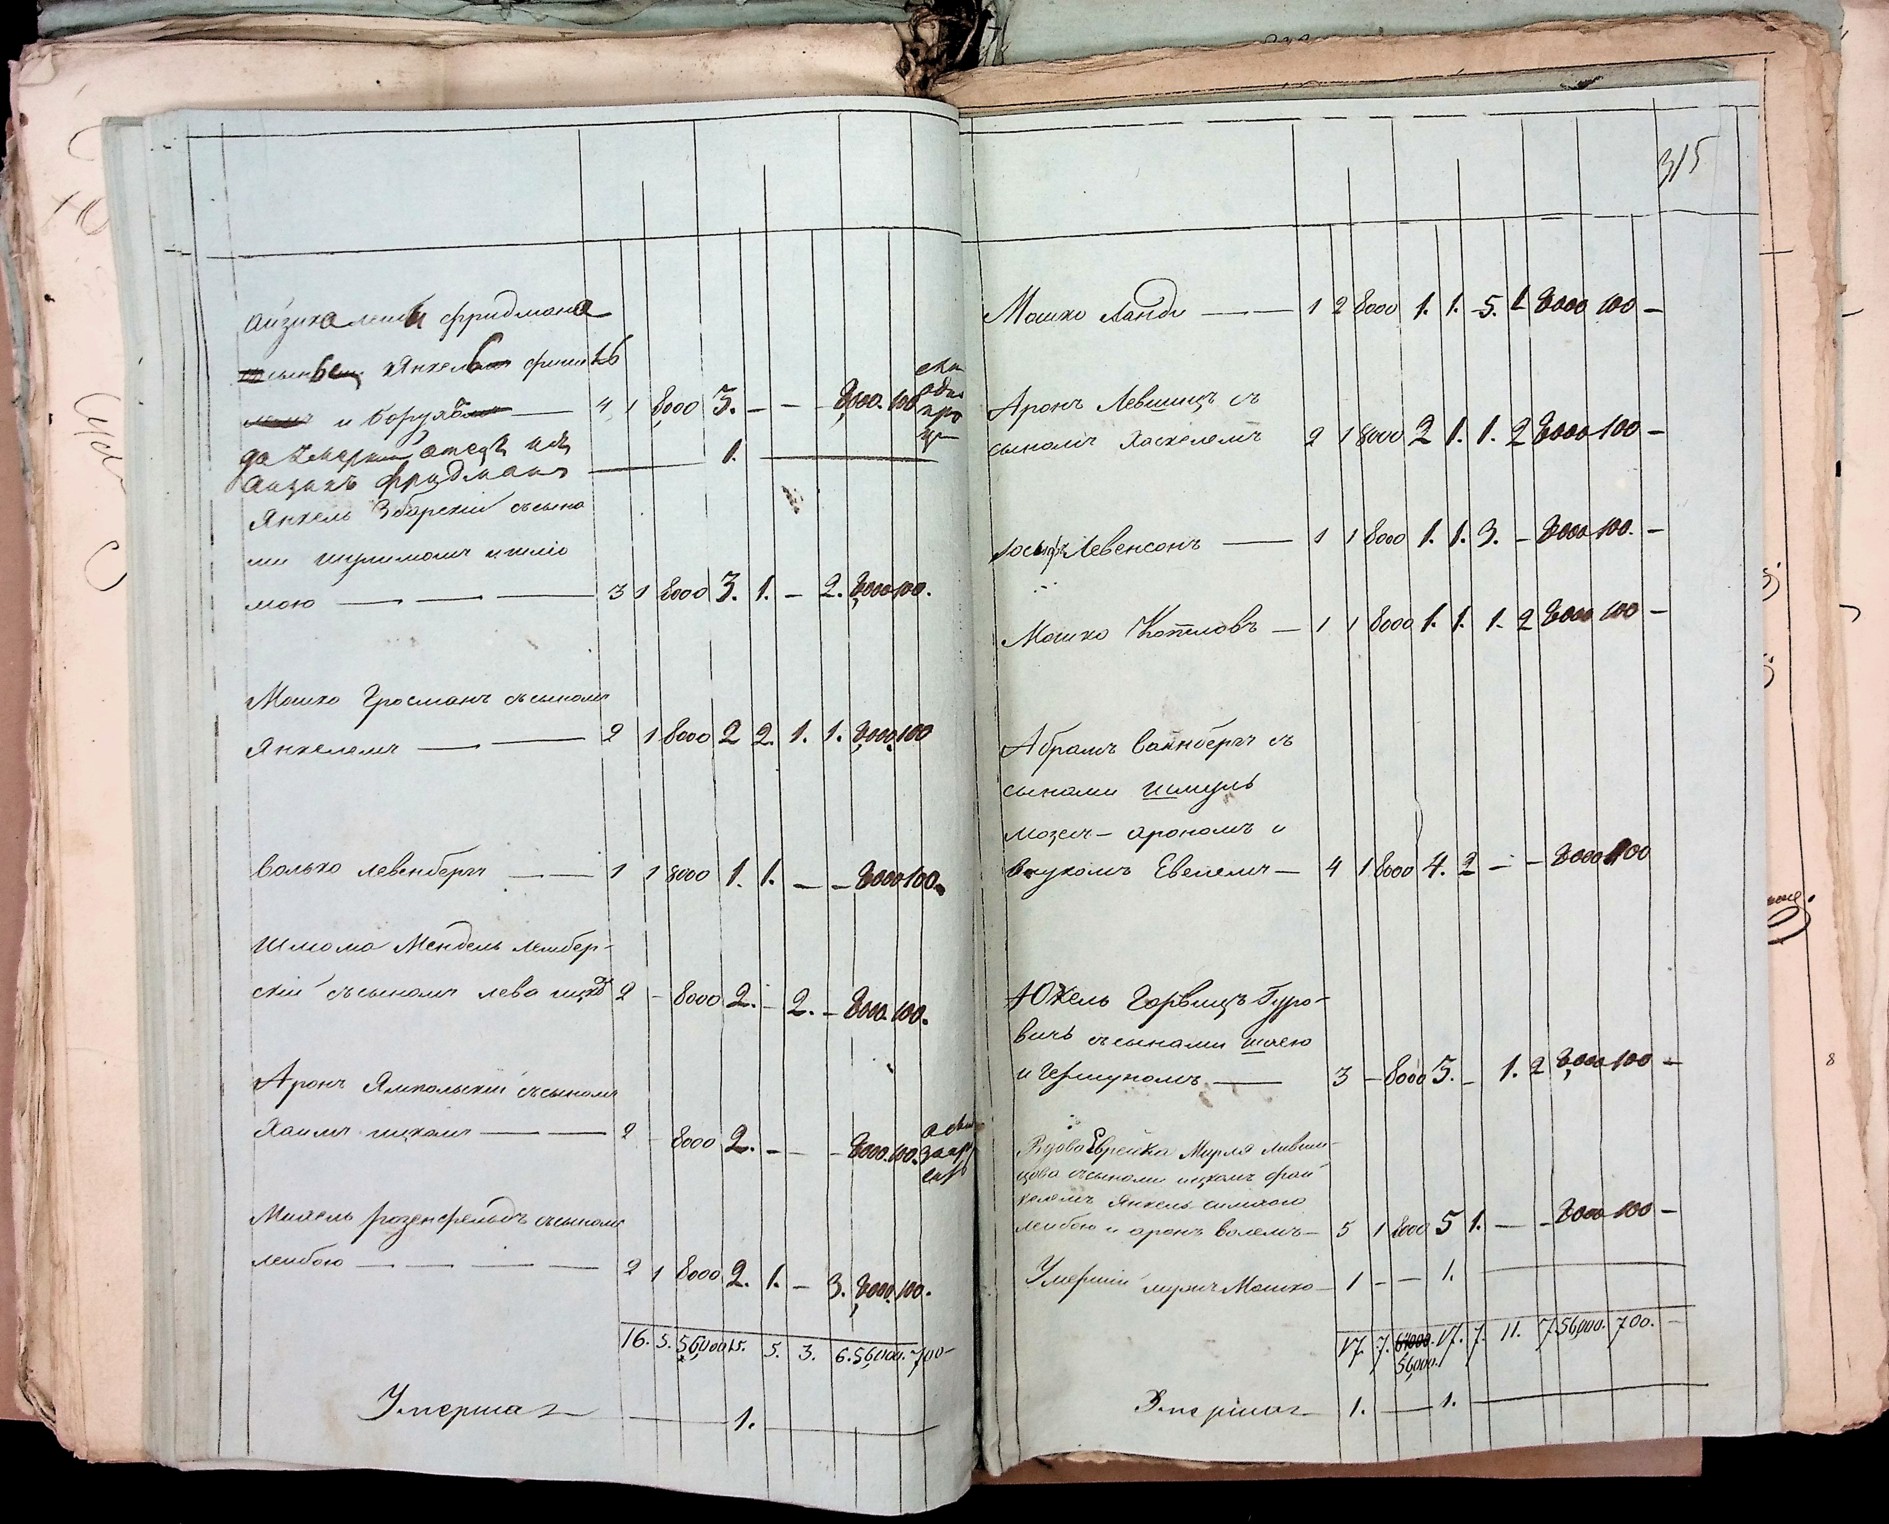 Айзика Лейби Фридмана
сыновей Янкель Фишель
и Борухъ — 4 1 8000 3. — — — 8000. 100
да умершій отецъ ихъ
Айзикъ Фридманъ — 1. —
Янкель Збарскій съ сына
ми Шулимомъ и Шлио
мою — — — 3 1 8000 3. 1. — 2. 8000 100.
Мошко Гросманъ съ сыномъ
Янкелемъ — — 2 1 8000 2 2. 1. 1. 8000. 100
Волько Левенбергъ — — 1 1 8000 1. 1. — — 8000 100.
Шлиома Мендель Лембер-
скій съ сыномъ Лева Ицко 2 — 8000 2. — 2. — 8000. 100.
Аронъ Ямпольскій съ сыномъ
Хаимъ Ицкомъ — — 2 — 8000 2. — — — 8000. 100.
Михель Розенфельдъ съ сыномъ
Лейбою — — — — 2 1 8000 2. 1. — 3. 8000. 100.
16. 5. 56,000 15. 5. 3. 6. 56,000. 700 —
Умерша — 1. —
315
Мошко Ланди — — 1 2 8000 1. 1. 5. 1 8000 100 —
Аронъ Левшицъ съ
сыномъ Хаскелемъ 2 1 8000 2 1. 1. 2 8000 100 —
Іосифъ Левенсонъ — 1 1 8000 1. 1. 3. — 8000 100. —
Мошко Коппловъ — 1 1 8000 1. 1. 1. 2 8000 100 —
Абрамъ Ваинбергъ съ
сынами Шмуль
Мозеи — Арономъ и
внукомъ Евелемъ — 4 1 8000 4. 2 — — 8000 100
Юкель Горвицъ Гуро-
вичъ съ сынами Шаею
и Гершуномъ — 3 — 8000 3. — 1. 2 8000 100 —
Вдова Еврейка Мирля Ливши-
цова съ сынами Ицкомъ Фай
келемъ Янкель Симхою
Лейбою и Аронъ Волемъ — 5 1 8000 5 1. — — 8000 100 —
Умершій мужъ Мошко — 1 — — 1. —
17. 7. 56,000. 17. 7. 11. 7. 56,000. 700. —
Умерша — 1. — 1. —